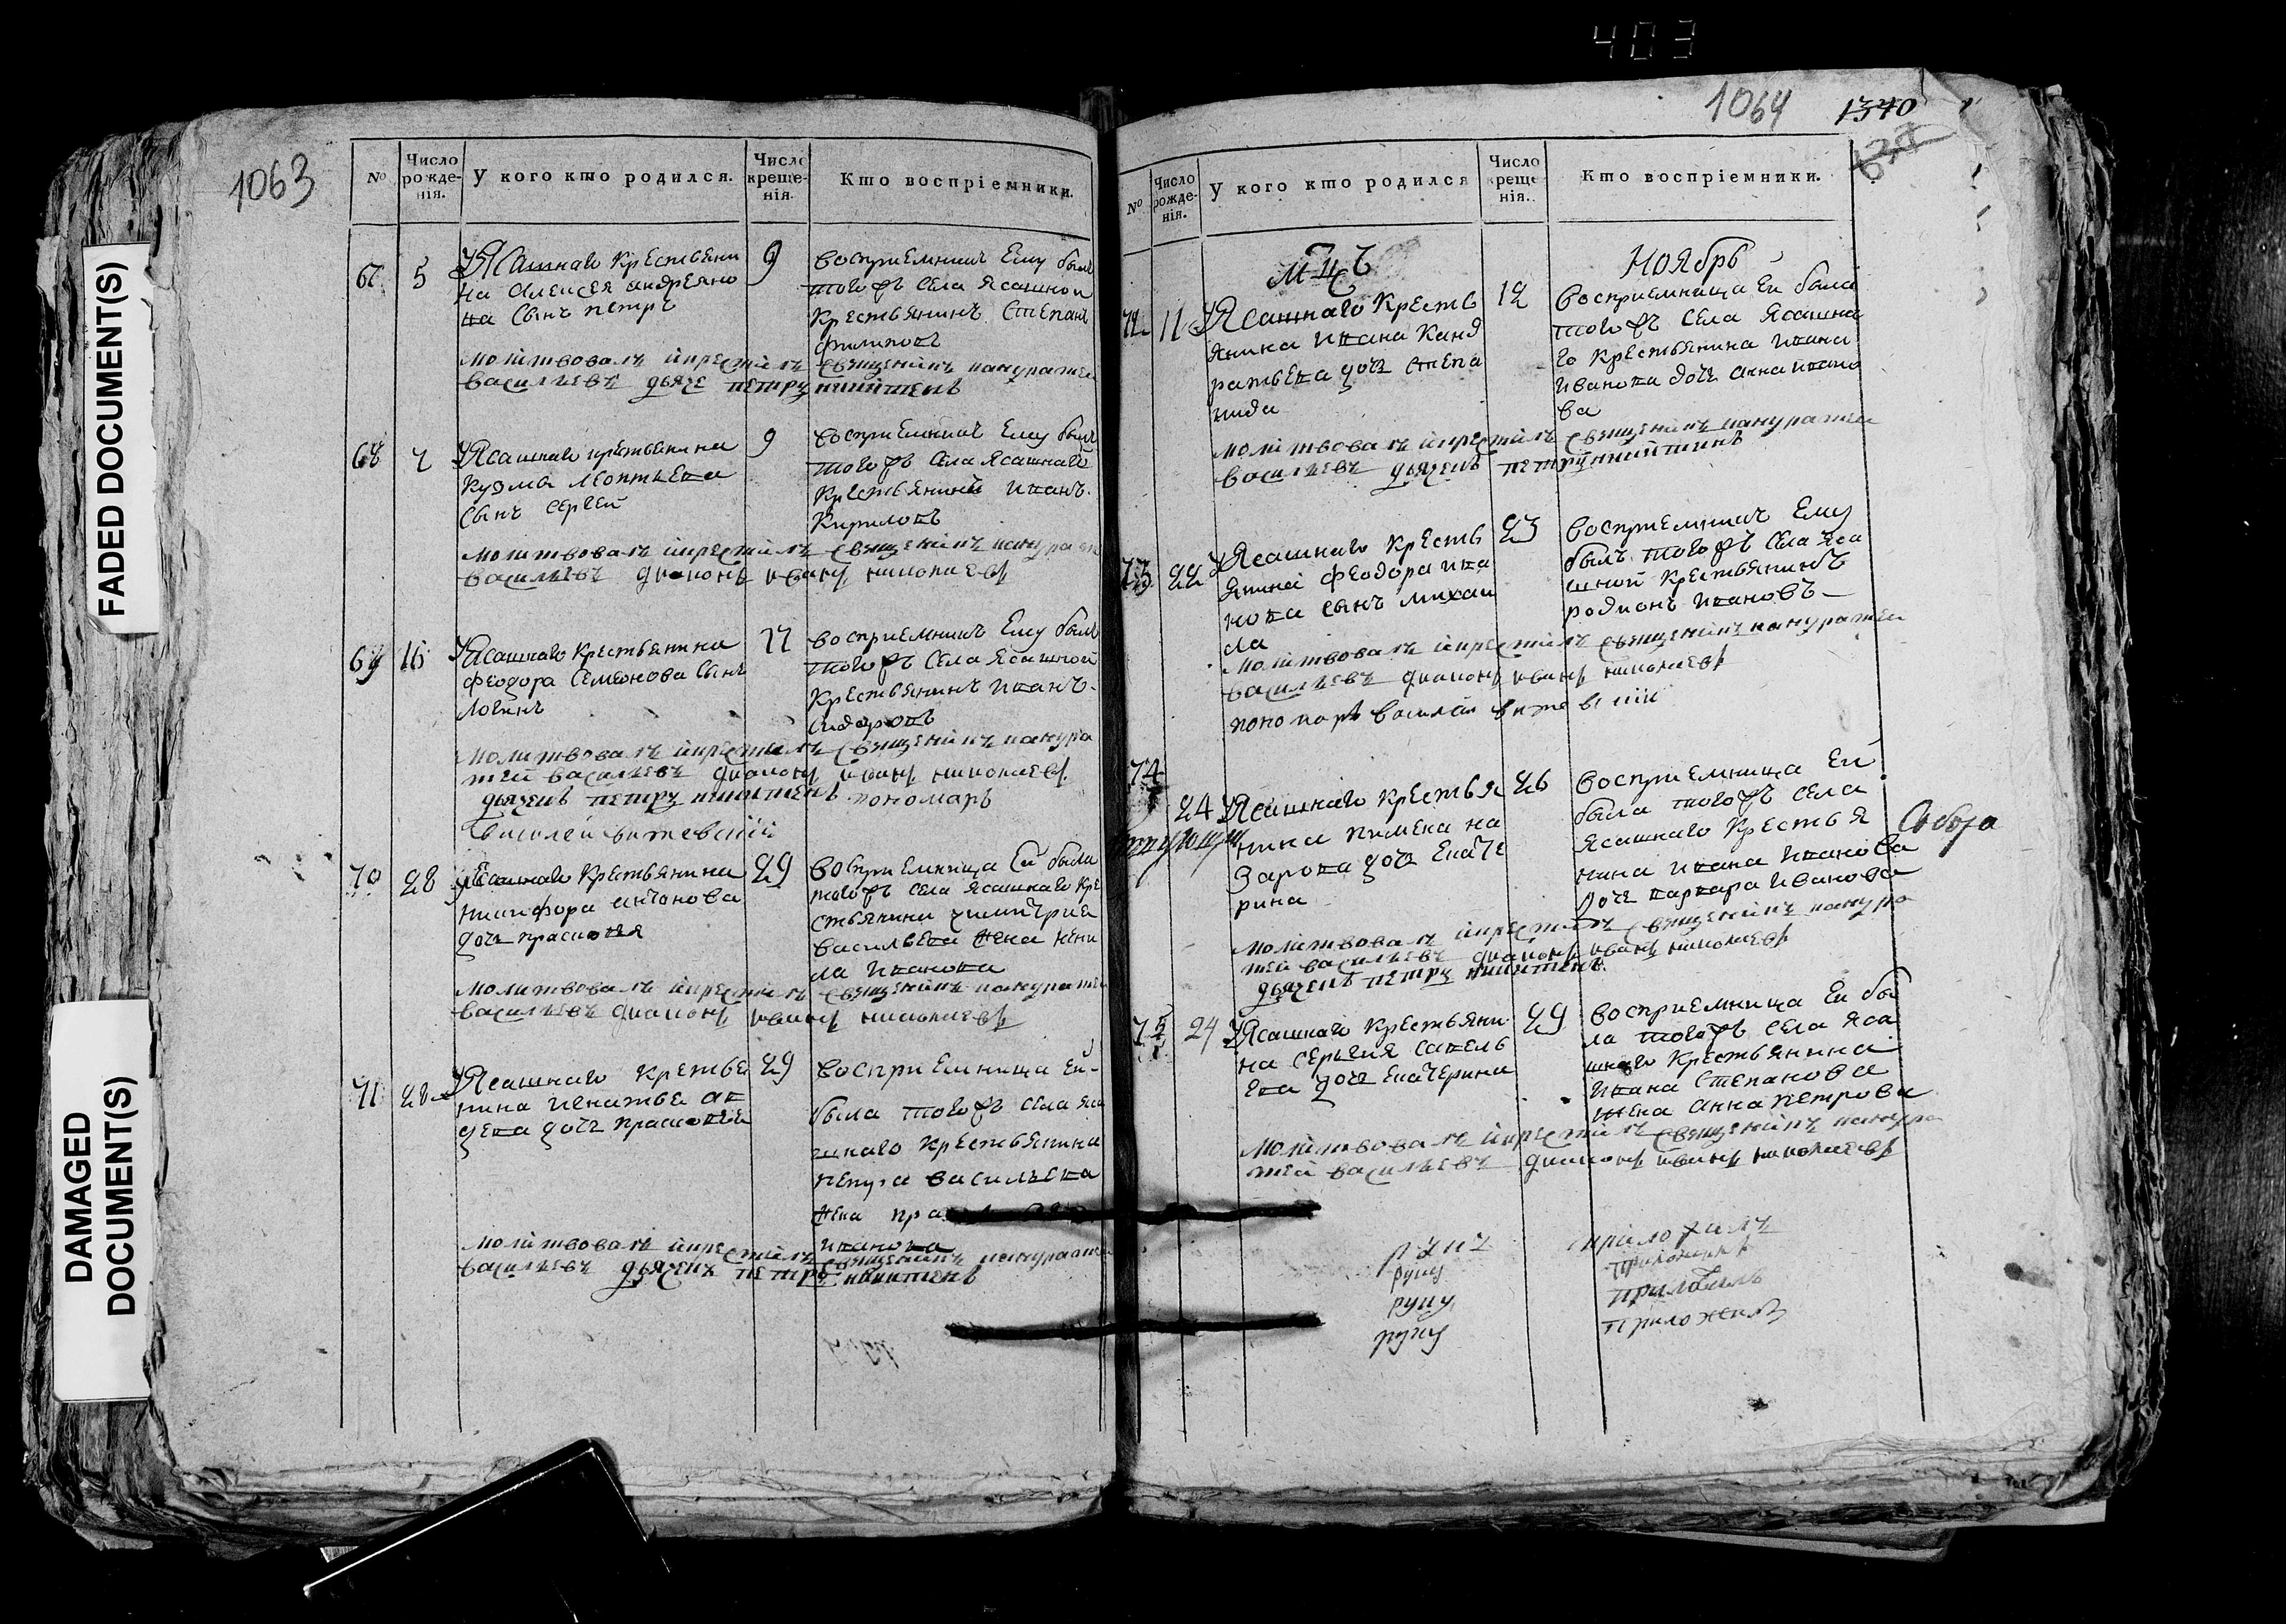 403
FADED DOCUMENT(S)
DAMAGED
DOCUMENT(S)
1063
№
Число
рожде-
нія.
У кого кто родился.
Число
креще-
нія.
Кто воспріемники.
67
5
У Ясашнаго крестьяни
на Алексея андреяно
ва Сынъ петръ
9
Восприемникъ Ему былъ
тогожъ Села Ясашнои
Крестьянинъ Степанъ
филиповъ
молитвовалъ икрестилъ священикъ панкратеи
василиевъ дьяче петръ никитинъ
68
7
У Ясашнаго крестьянина
Кузмы Леонтьева
Сынъ Сергеи
9
Восприемникъ Ему былъ
тогожъ Села Ясашнаго
Крестьянинъ иванъ
Кириловъ
молитвовалъ икрестилъ священикъ панкратеи
василиевъ диаконъ иванъ николаевъ
69
16
У Ясашнаго Крестьянина
феодора Семеонова Сынъ
Логинъ
17
Восприемникъ Ему былъ
тогожъ Села Ясашной
Крестьянинъ иванъ
Сидоровъ
молитвовалъ икрестилъ священикъ панкра
теи василиевъ диаконъ иванъ николаевъ
дьячекъ петръ никитинъ пономарь
василеи
70
28
У Ясашнаго Крестьянина
никифора антонова
дочь прасковья
29
Восприемница Ей была
тогожъ Села Ясашнаго Кре
стьянина димитрия
васильева жена нени
ла иванова
молитвовалъ икрестилъ священикъ панкратеи
василиевъ диаконъ иванъ николаевъ
71
28
У Ясашнаго Крестья
нина игнатья ав
деева дочь прасковья
29
Восприемница Ей
была тогожъ Села яса
шнаго Крестьянина
василиева
жена
иванова
молитвовалъ икрестилъ священикъ панкратеи
василиевъ дьячекъ петръ никитинъ
1064
1340
№
Число
рожде-
нія.
У кого кто родился
Число
креще
нія.
Кто воспріемники.
Мцъ
Ноябрь
72
11
У Ясашнаго Кресть
янина ивана Конд
ратьева дочь Степа
нида
12
Восприемница Ей была
тогожъ Села Ясашна
го Крестьянина ивана
иванова дочь анна ивано
ва
молитвовалъ икрестилъ священикъ панкратеи
василиевъ дьячекъ петръ никитинъ
73
22
У Ясашнаго Кресть
янина феодора ива
нова сынъ михаи
ла
23
Восприемникъ Ему
былъ тогожъ Села Яса
шной Крестьянинъ
родионъ ивановъ
молитвовалъ икрестилъ священикъ панкратеи
василиевъ диаконъ иванъ николаевъ
пономарь василеи
74
24
У Ясашнаго Крестья
нина пимена на
зарова дочь Екате
рина
26
Восприемница Ей
была тогожъ Села
Ясашнаго Крестья
нина ивана иванова
дочь варвара иванова
Собора
молитвовалъ икрестилъ священикъ панкра
теи василиевъ диаконъ иванъ николаевъ
дьячекъ петръ никитинъ
75
24
У Ясашнаго Крестьяни
на Сергия Савель
ева дочь Екатерина
29
Восприемница Ей бы
ла тогожъ Села Яса
шнаго Крестьянина
ивана Степанова
жена анна петрова
молитвовалъ икрестилъ священикъ панкра
теи василиевъ диаконъ иванъ николаевъ
руку приложилъ
руку приложилъ
руку приложилъ
руку приложилъ